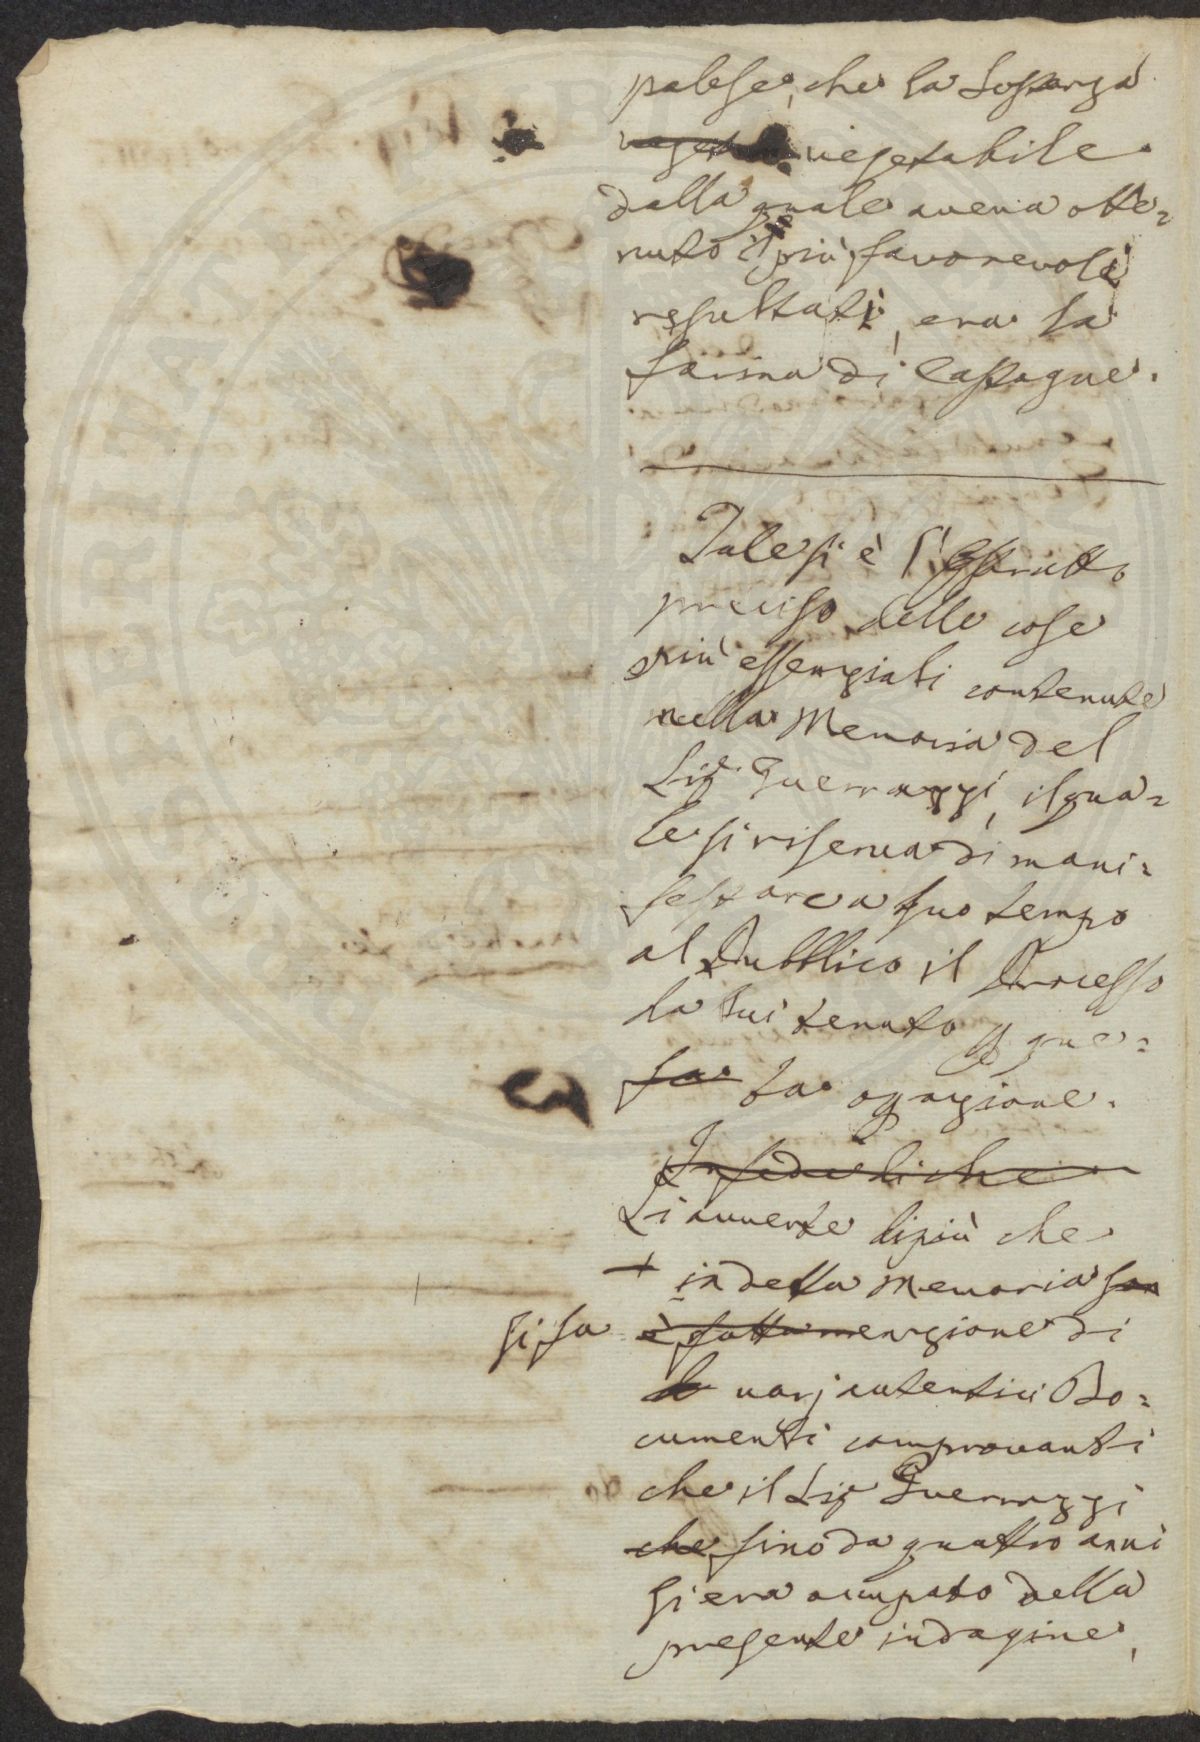 palese, che la Sostanza
vegetabile
dalla quale aveva otte=
nuto i più favorevoli
resultati, era la
farina di Castagne.
Tale si è l'Estratto
preciso delle cose
più essenziali contenute
nella Memoria del
Sig.r Guerrazzi, il qua=
le si riserva di mani=
festare a suo tempo
al Pubblico il Processo
da lui tenuto p que=
sta ogazione.
Infede di che
Si avverte di più che
+ in detta Memoria son
si fa è fatta menzione di
varj autentici Do=
cumenti comprovanti
che il Sig.r Guerrazzi
che sino da quattro anni
si era occupato della
presente indagine,